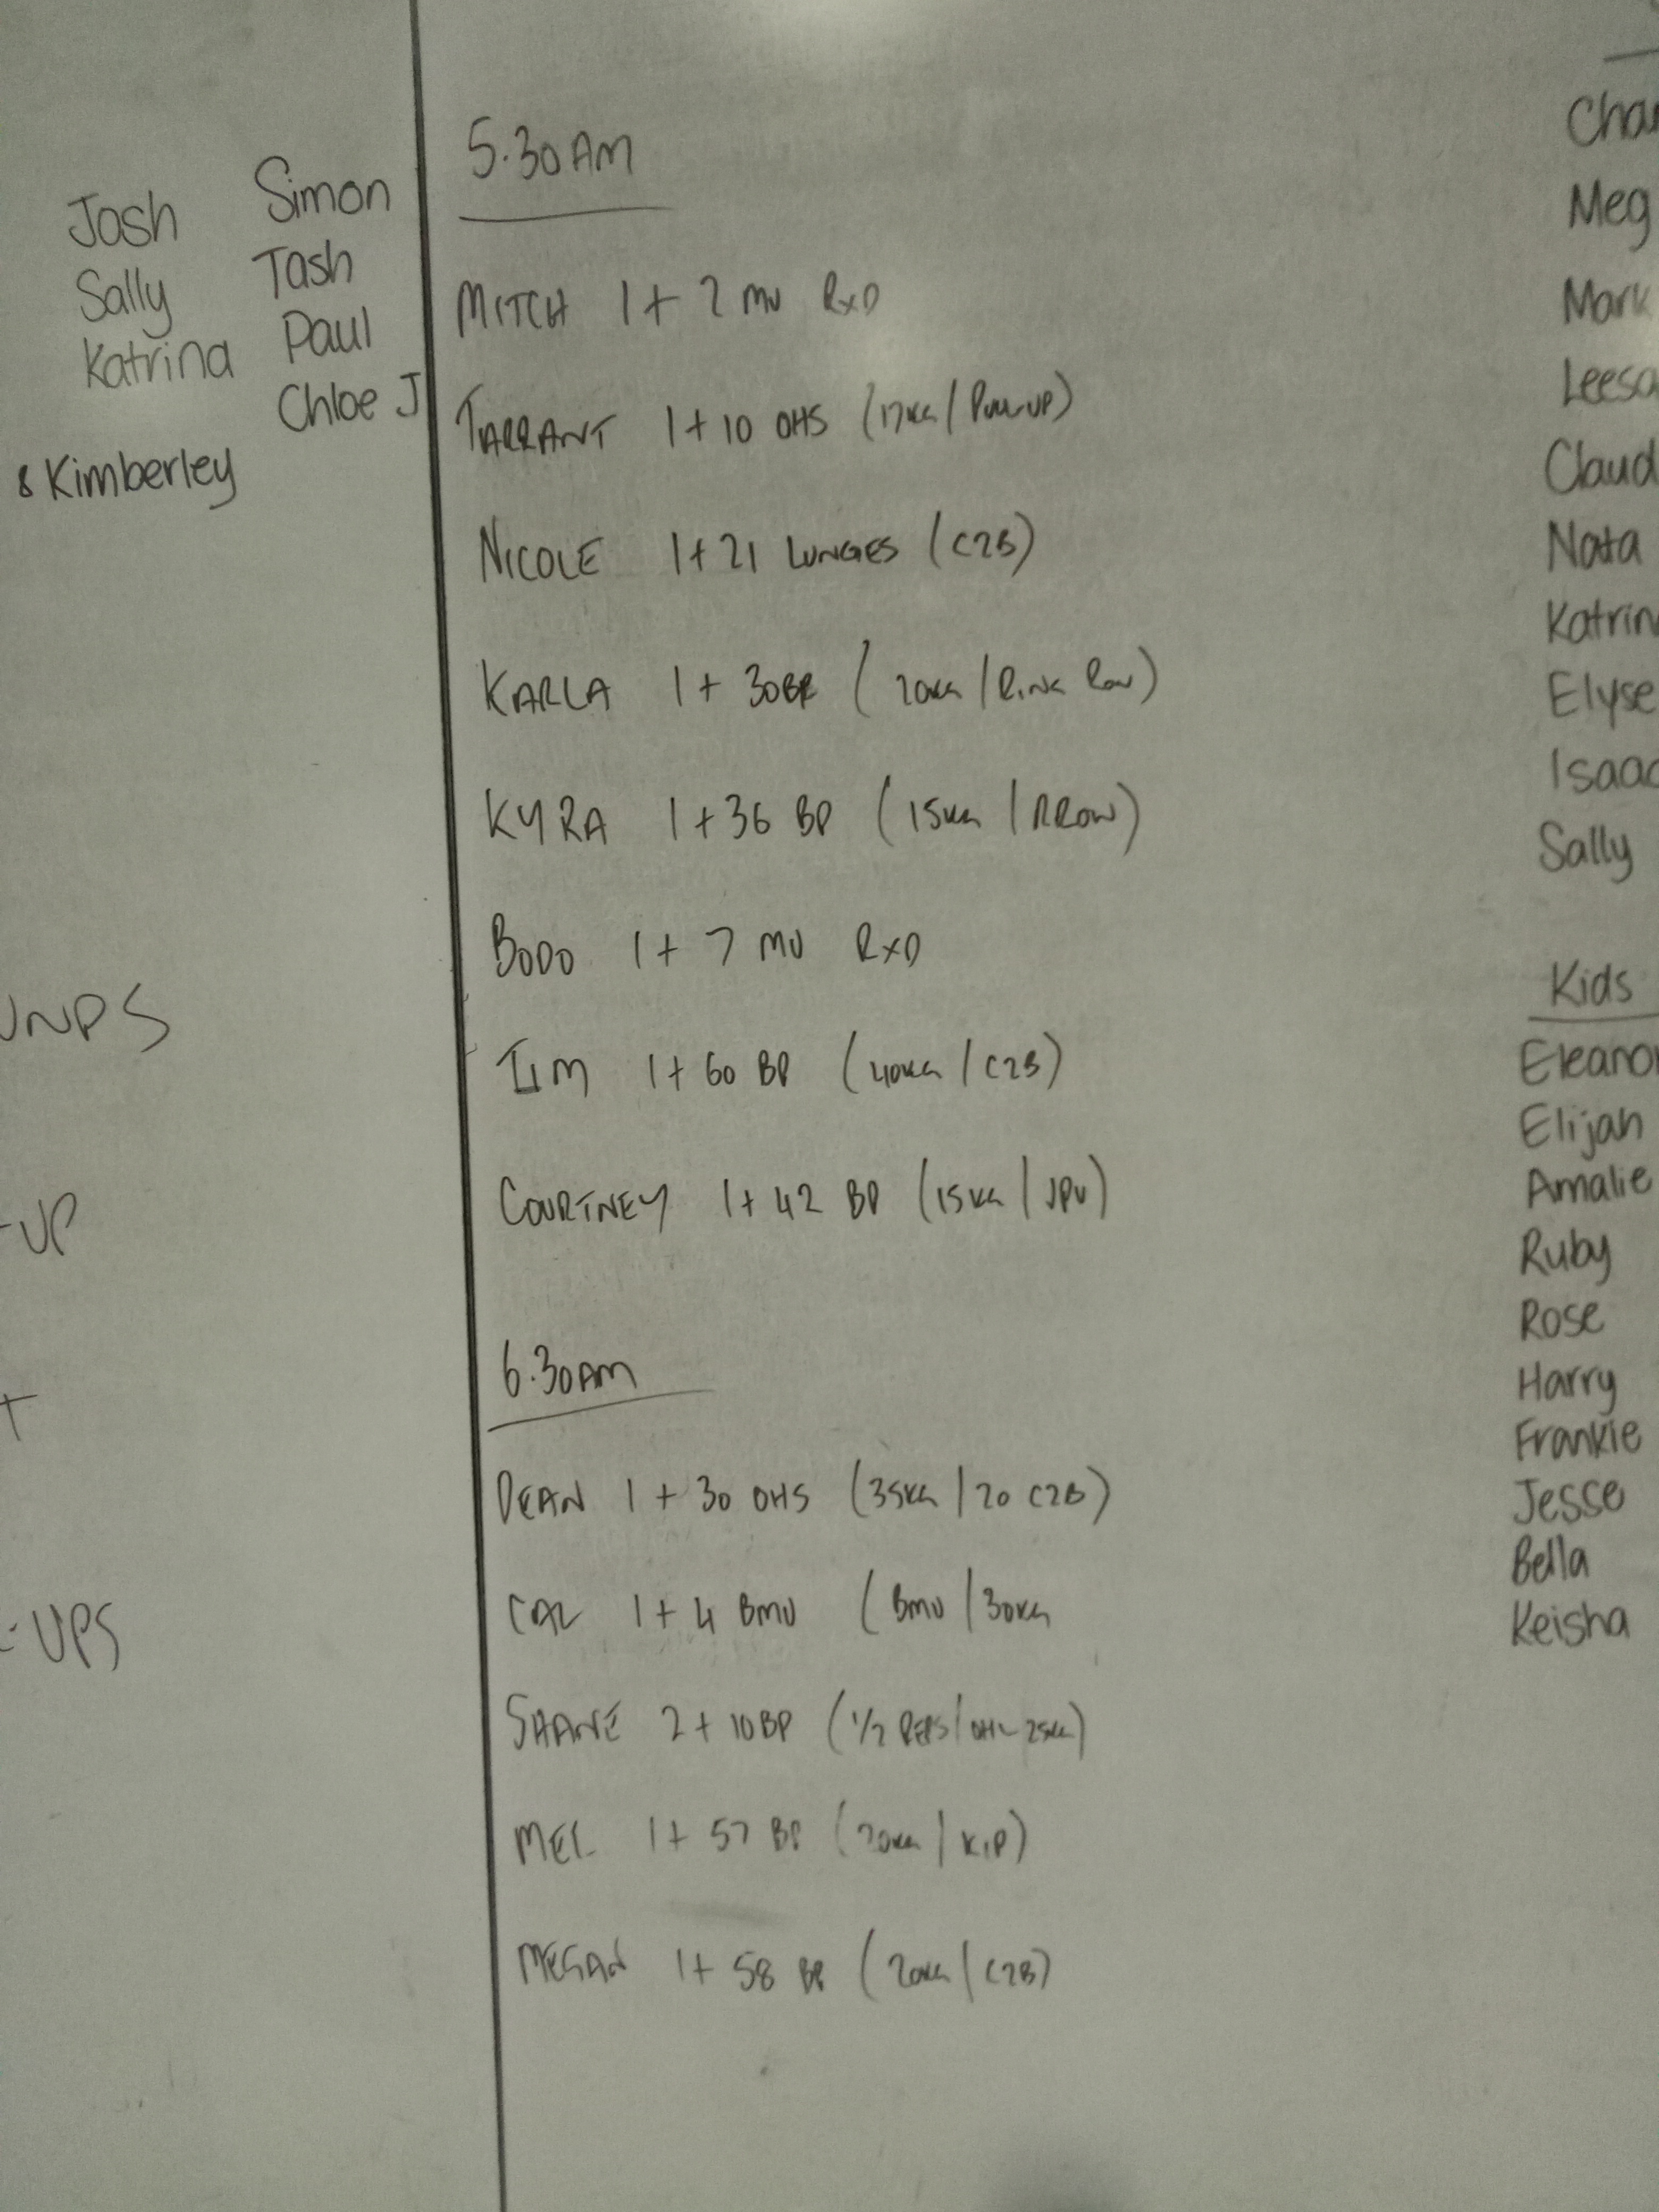 Josh Simon
Sally Tash
Katrina Paul
Chloe J
& Kimberley
UP
UPS
5.30AM
MITCH 1 + 2 MU RXD
TARRANT 1 + 10 OHS (17KG / PULL-UP)
NICOLE 1 + 21 LUNGES (C2B)
KARLA 1 + 30BP (20KG / RING ROW)
KYRA 1 + 36 BP (15KG / RROW)
BODO 1 + 7 MU RXD
TIM 1 + 60 BP (40KG / C2B)
COURTNEY 1 + 42 BP (15KG / JPU)
6.30AM
DEAN 1 + 30 OHS (35KG / 20 C2B)
CAL 1 + 4 BMU (BMU / 30KG
SHANE 2 + 10BP (1/2 REPS / 25KG)
MEL 1 + 57 BP (20KG / KIP)
MEGAN 1 + 58 BP (20KG / C2B)
Char
Meg
Mark
Leesa
Claud
Nata
Katrin
Elyse
Isaac
Sally
Kids
Eleanor
Elijah
Amalie
Ruby
Rose
Harry
Frankie
Jesse
Bella
Keisha